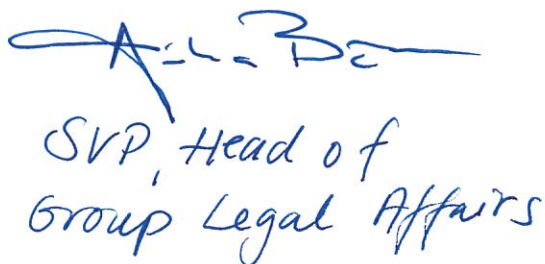 SVP, Head of
Group Legal Affairs